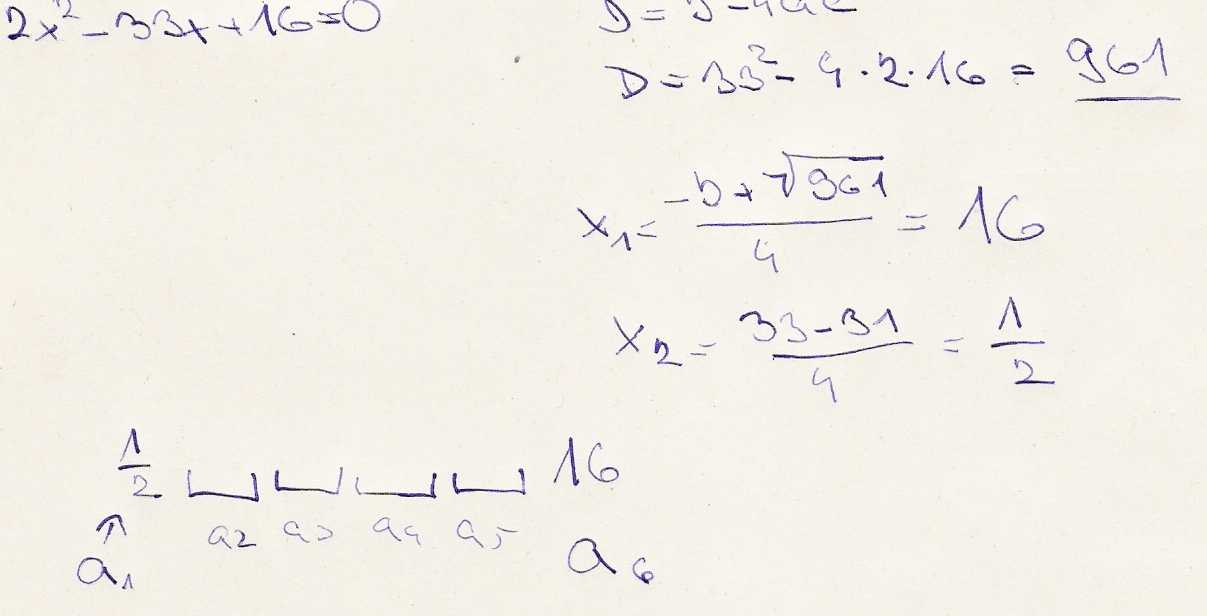 2x² - 33x + 16 = 0
D = b² - 4ac
D = 33² - 4 · 2 · 16 = 961
x₁ = (-b + √961) / 4 = 16
x₂ = (33 - 31) / 4 = 1/2
1/2 ⎵ ⎵ ⎵ ⎵ 16
↑ a2 a3 a4 a5
a₁ a₆